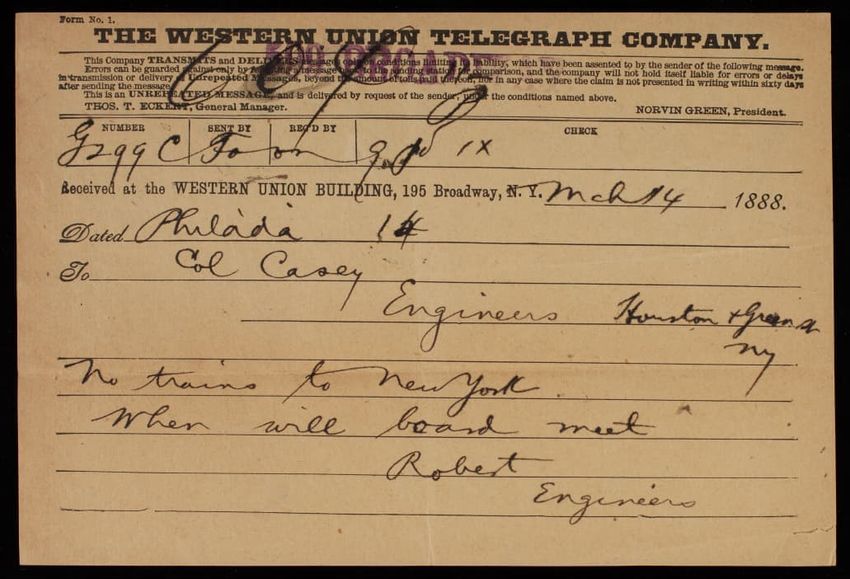 Form No. 1.
THE WESTERN UNION TELEGRAPH COMPANY.
This Company TRANSMITS and DELIVERS messages only on conditions limiting its liability, which have been assented to by the sender of the following message.
Errors can be guarded against only by repeating a message back to the sending station for comparison, and the company will not hold itself liable for errors or delays
in transmission or delivery of Unrepeated Messages, beyond the amount of tolls paid thereon, nor in any case where the claim is not presented in writing within sixty days
after sending the message.
This is an UNREPEATED MESSAGE, and is delivered by request of the sender, under the conditions named above.
THOS. T. ECKERT, General Manager. NORVIN GREEN, President.
NUMBER SENT BY REC'D BY CHECK
Received at the WESTERN UNION BUILDING, 195 Broadway, N. Y. Mch 14 1888.
Dated Philada 14
To Col Casey
Engineers Houston + Green St
NY
No trains to New York.
When will board meet
Robert
Engineers